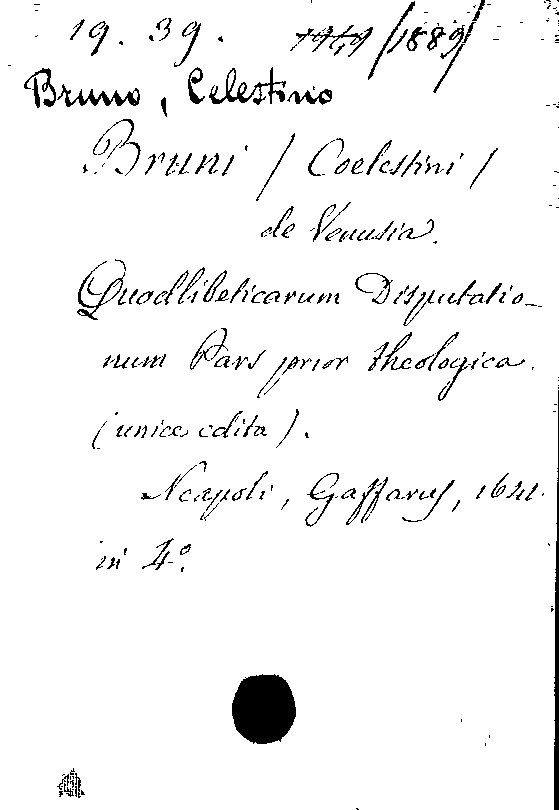 19. 39. 1949 /1889/
Bruno, Celestino
Bruni / Coelestini /
de Venusia.
Quodlibeticarum Disputatio-
num Pars prior theologica.
(unice edita).
Neapoli, Gaffarus, 1641.
in 4º.